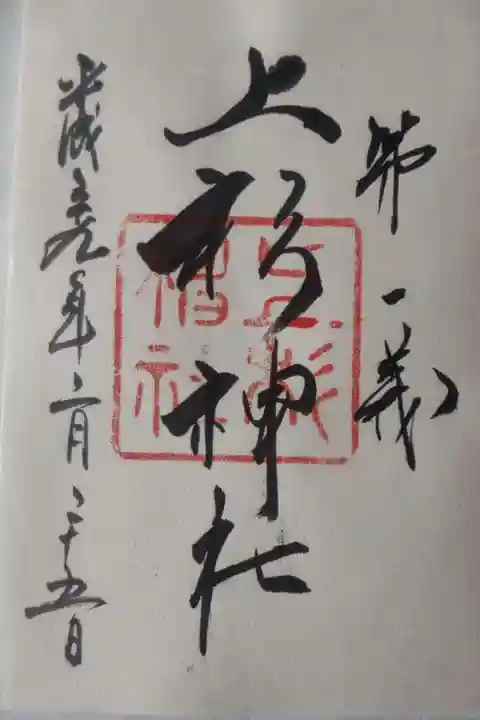 第一義
上杉神社
平成年二月二十五日
上杉
神社